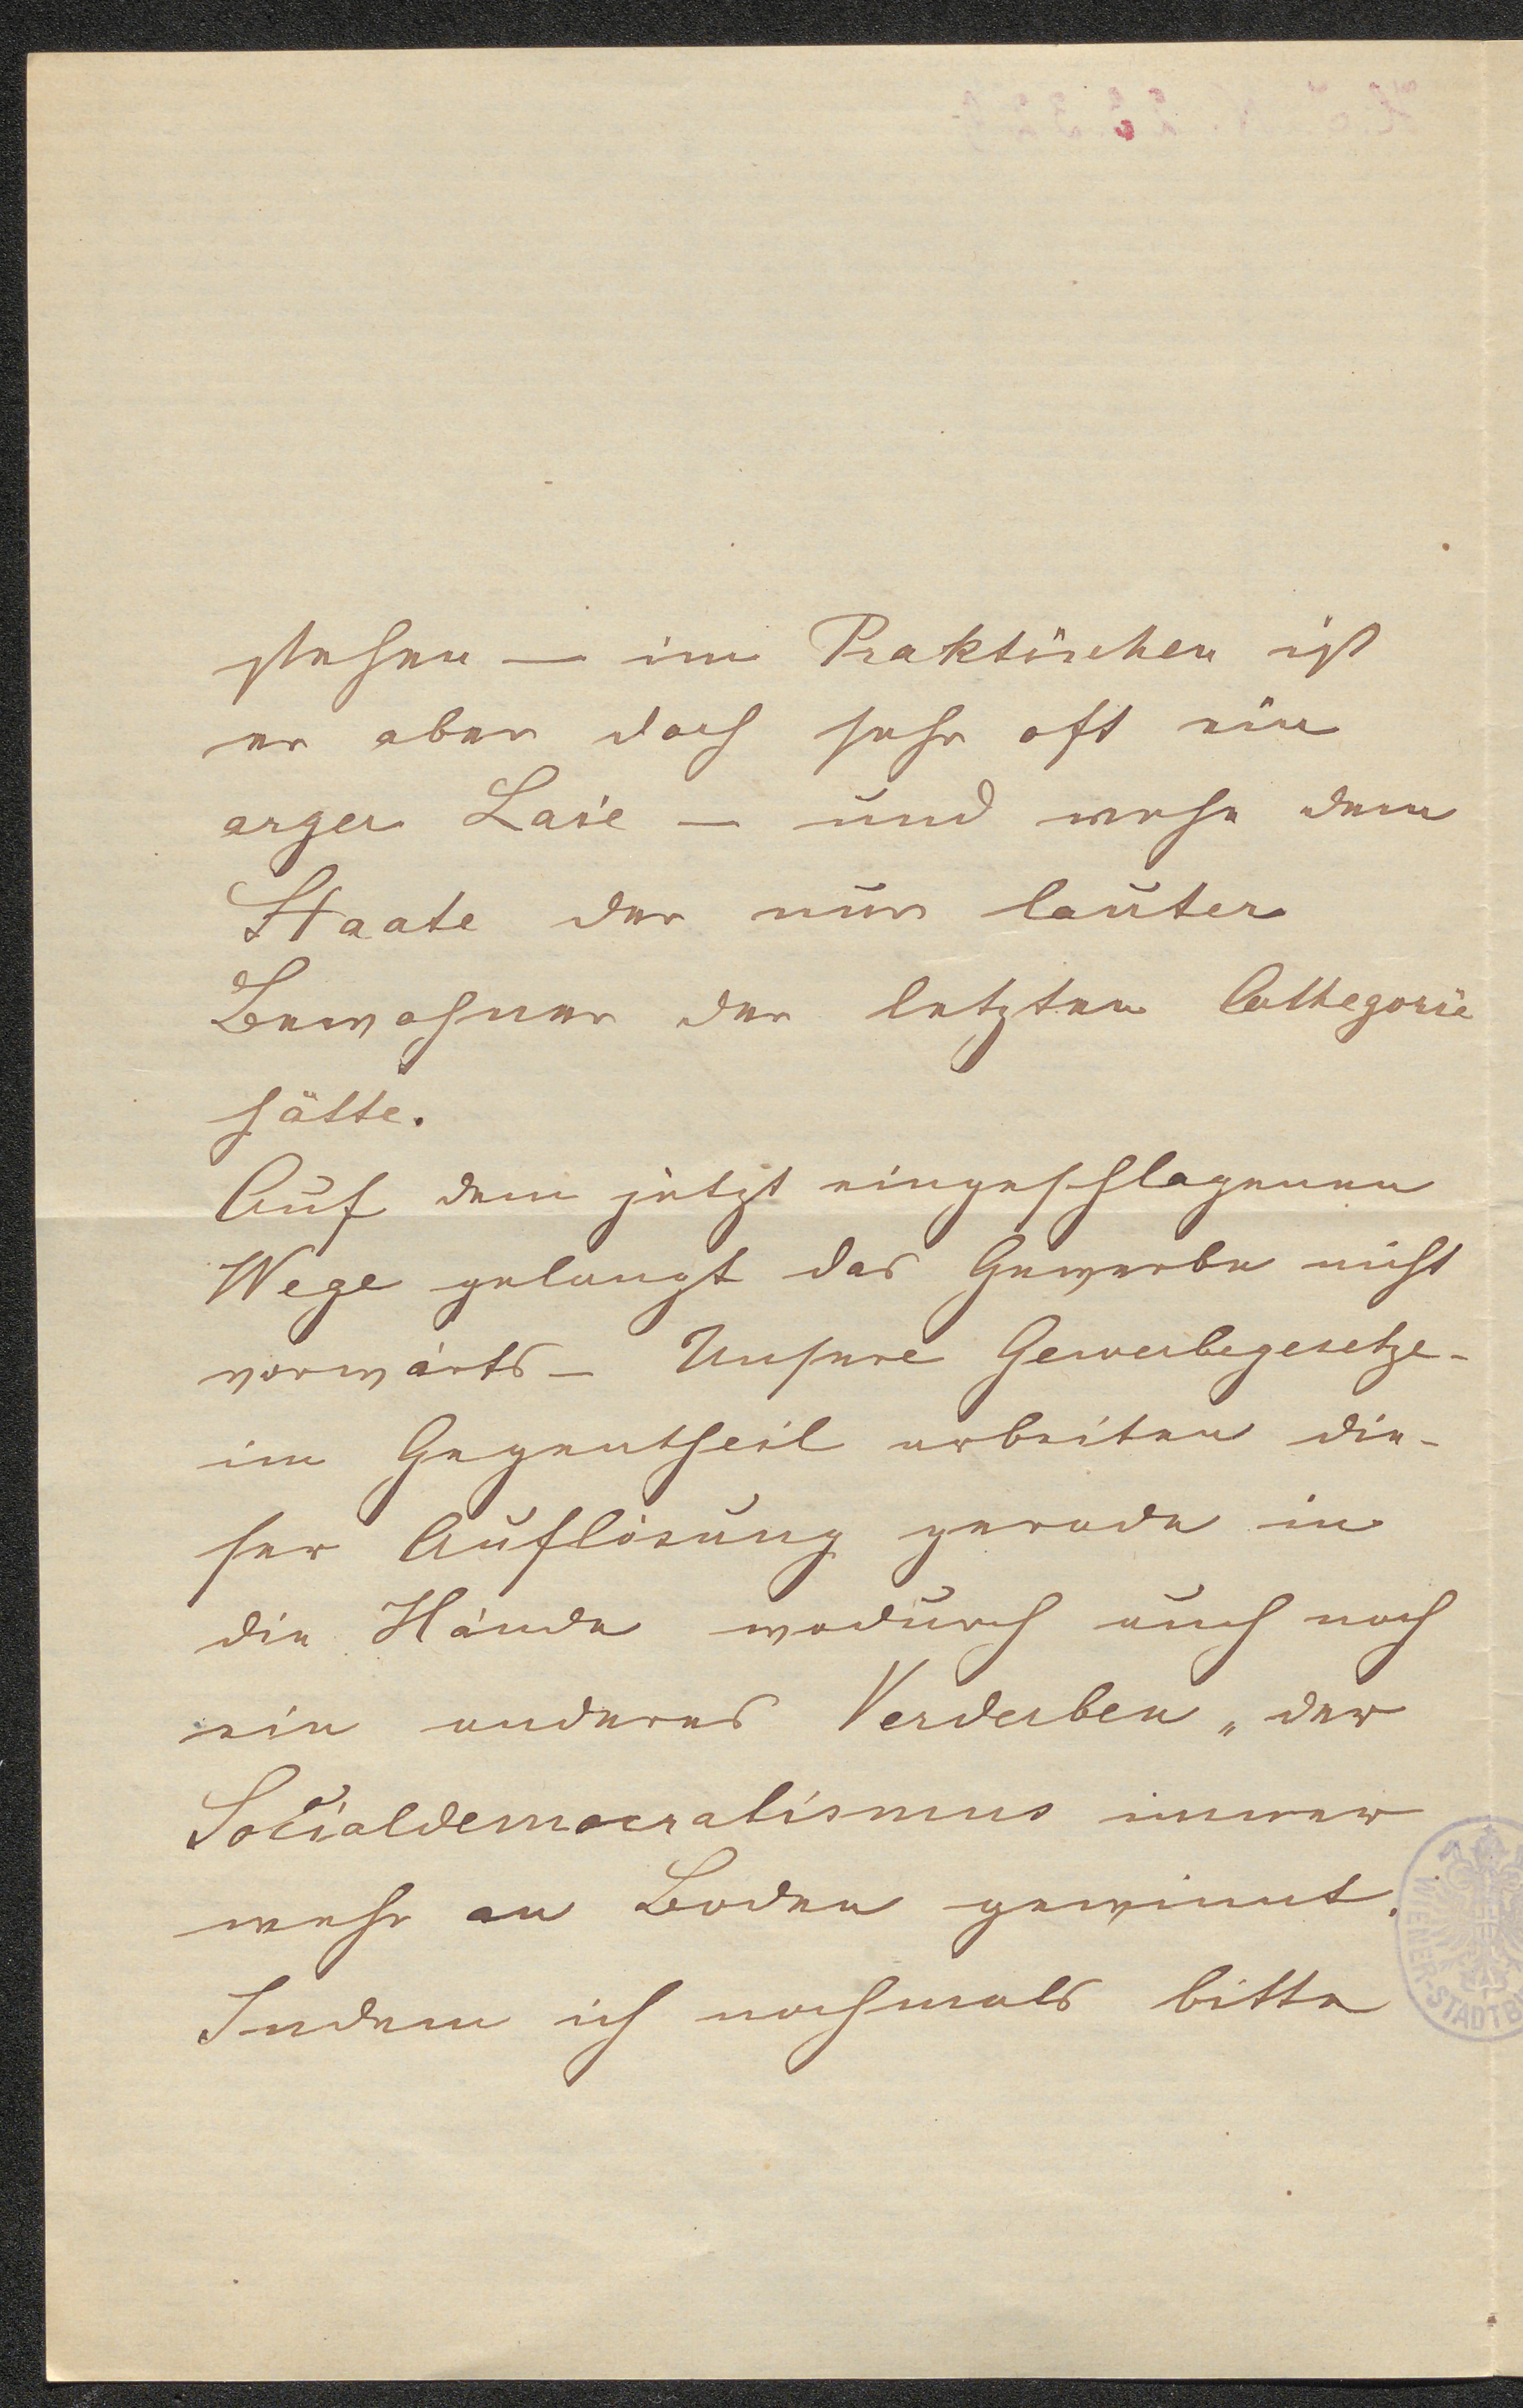 stehen — im Praktischen ist
er aber doch sehr oft ein
arger Laie — und wehe dem
Staate der nur lauter
Bewohner der letzten Cathegorie
hätte.
Auf dem jetzt eingeschlagenen
Wege gelangt das Gewerbe nicht
vorwärts — Unsere Gewerbegesetze -
im Gegentheil arbeiten die-
ser Auflösung gerade in
die Hände wodurch auch noch
ein anderes Verderben „der
Socialdemocratismus immer
mehr an Boden gewinnt.
Indem ich nochmals bitte
WIENER-STADTB